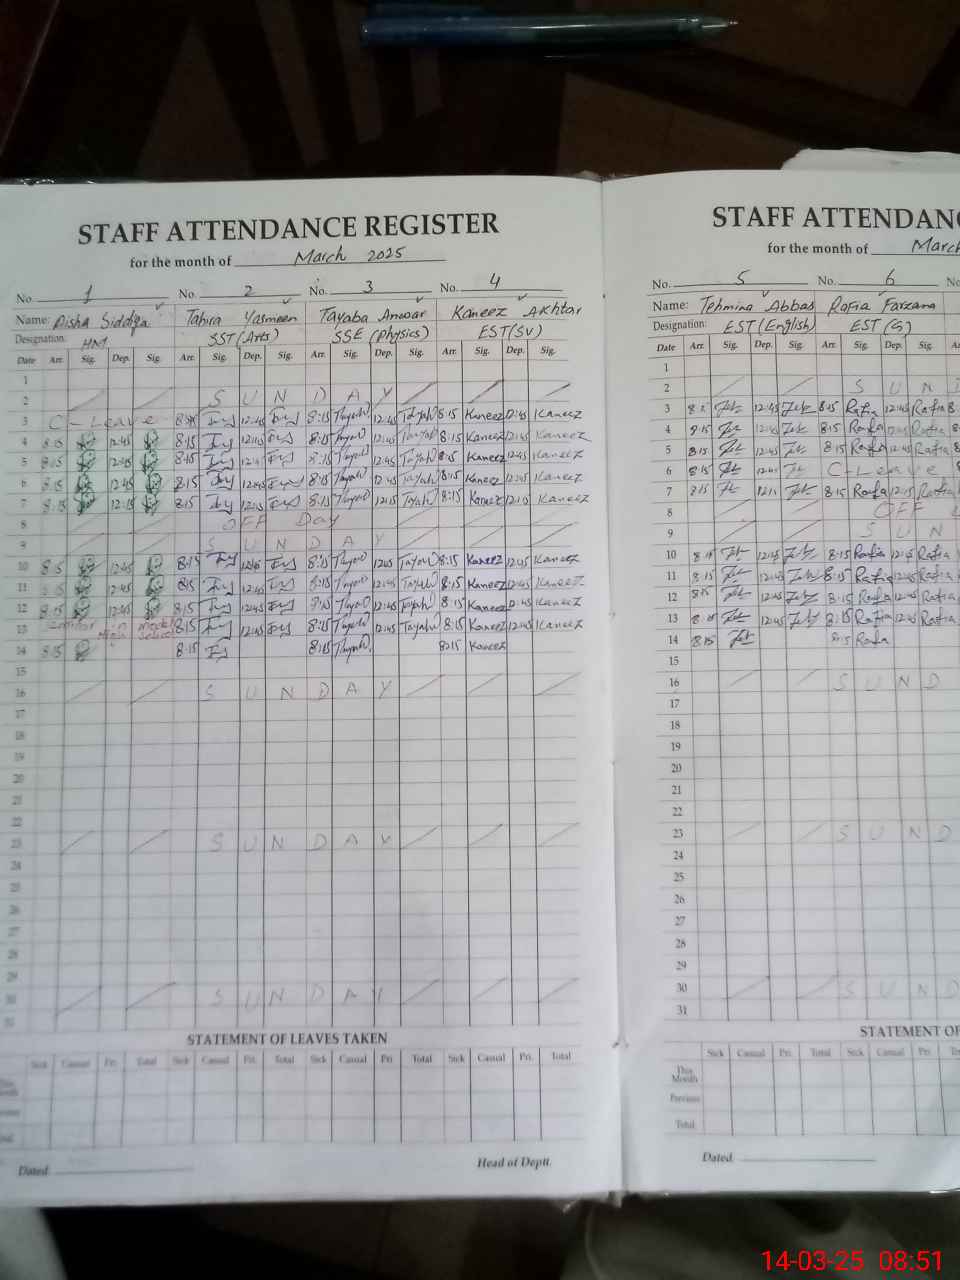 STAFF ATTENDANCE REGISTER
for the month of March 2025
No. 1 No. 2 No. 3 No. 4
Name: Aisha Siddiqa Tahira Yasmeen Tayaba Anwar Kaneez Akhtar
Designation: HM SST (Arts) SSE (Physics) EST(SV)
Date Arr. Sig. Dep. Sig. Arr. Sig. Dep. Sig. Arr. Sig. Dep. Sig. Arr. Sig. Dep. Sig.
1
2 S U N D A Y
3 C-Leave 12:45 8:15 Tayaba 12:45 Tayaba 8:15 Kaneez 12:45 Kaneez
4 8:15 12:45 8:15 12:45 8:15 Tayaba 12:45 Tayaba 8:15 Kaneez 12:45 Kaneez
5 8:15 12:45 8:15 8:15 Tayaba 12:45 Tayaba 8:15 Kaneez 12:45 Kaneez
6 8:15 12:45 8:15 12:45 8:15 Tayaba 12:45 Tayaba 8:15 Kaneez 12:45 Kaneez
7 8:15 12:15 8:15 12:15 8:15 Tayaba 12:15 Tayaba 8:15 Kaneez 12:15 Kaneez
8 OFF Day
9 S U N D A Y
10 8:15 12:45 8:15 12:45 8:15 Tayaba 12:45 Tayaba 8:15 Kaneez 12:45 Kaneez
11 8:15 12:45 8:15 12:45 8:15 Tayaba 12:45 Tayaba 8:15 Kaneez 12:45 Kaneez
12 8:15 12:45 8:15 12:45 8:15 Tayaba 12:45 Tayaba 8:15 Kaneez 12:45 Kaneez
13 in model School 8:15 12:45 8:15 Tayaba 12:45 Tayaba 8:15 Kaneez 12:45 Kaneez
14 8:15 8:15 8:15 Tayaba 8:15 Kaneez
15
16 S U N D A Y
17
18
19
20
21
22
23 S U N D A Y
24
25
26
27
28
29
30 S U N D A Y
31
STATEMENT OF LEAVES TAKEN
Sick Casual Pri. Total Sick Casual Pri. Total Sick Casual Pri. Total Sick Casual Pri. Total
Dated Head of Deptt.
STAFF ATTENDANC
for the month of March
No. 5 No. 6 No
Name: Tehmina Abbas Rafia Farzana
Designation: EST (English) EST (G)
Date Arr. Sig. Dep. Sig. Arr. Sig. Dep. Sig.
1
2 S U N D
3 12:45 8:15 Rafia 12:45 Rafia
4 8:15 12:45 8:15 Rafia 12:45 Rafia
5 8:15 12:45 8:15 Rafia 12:45 Rafia
6 8:15 C-Leave
7 8:15 8:15 Rafia 12:15 Rafia
8 OFF
9 S U N
10 12:45 8:15 Rafia 12:45 Rafia
11 8:15 12:45 8:15 Rafia 12:45 Rafia
12 8:15 12:45 8:15 Rafia 12:45 Rafia
13 8:15 12:45 8:15 Rafia 12:45 Rafia
14 8:15 8:15 Rafia
15
16 S U N D
17
18
19
20
21
22
23 S U N D
24
25
26
27
28
29
30 S U N D
31
STATEMENT OF
Sick Casual Pri. Total Sick Casual Pri. Total
This Month
Previous
Total
Dated
14-03-25 08:51